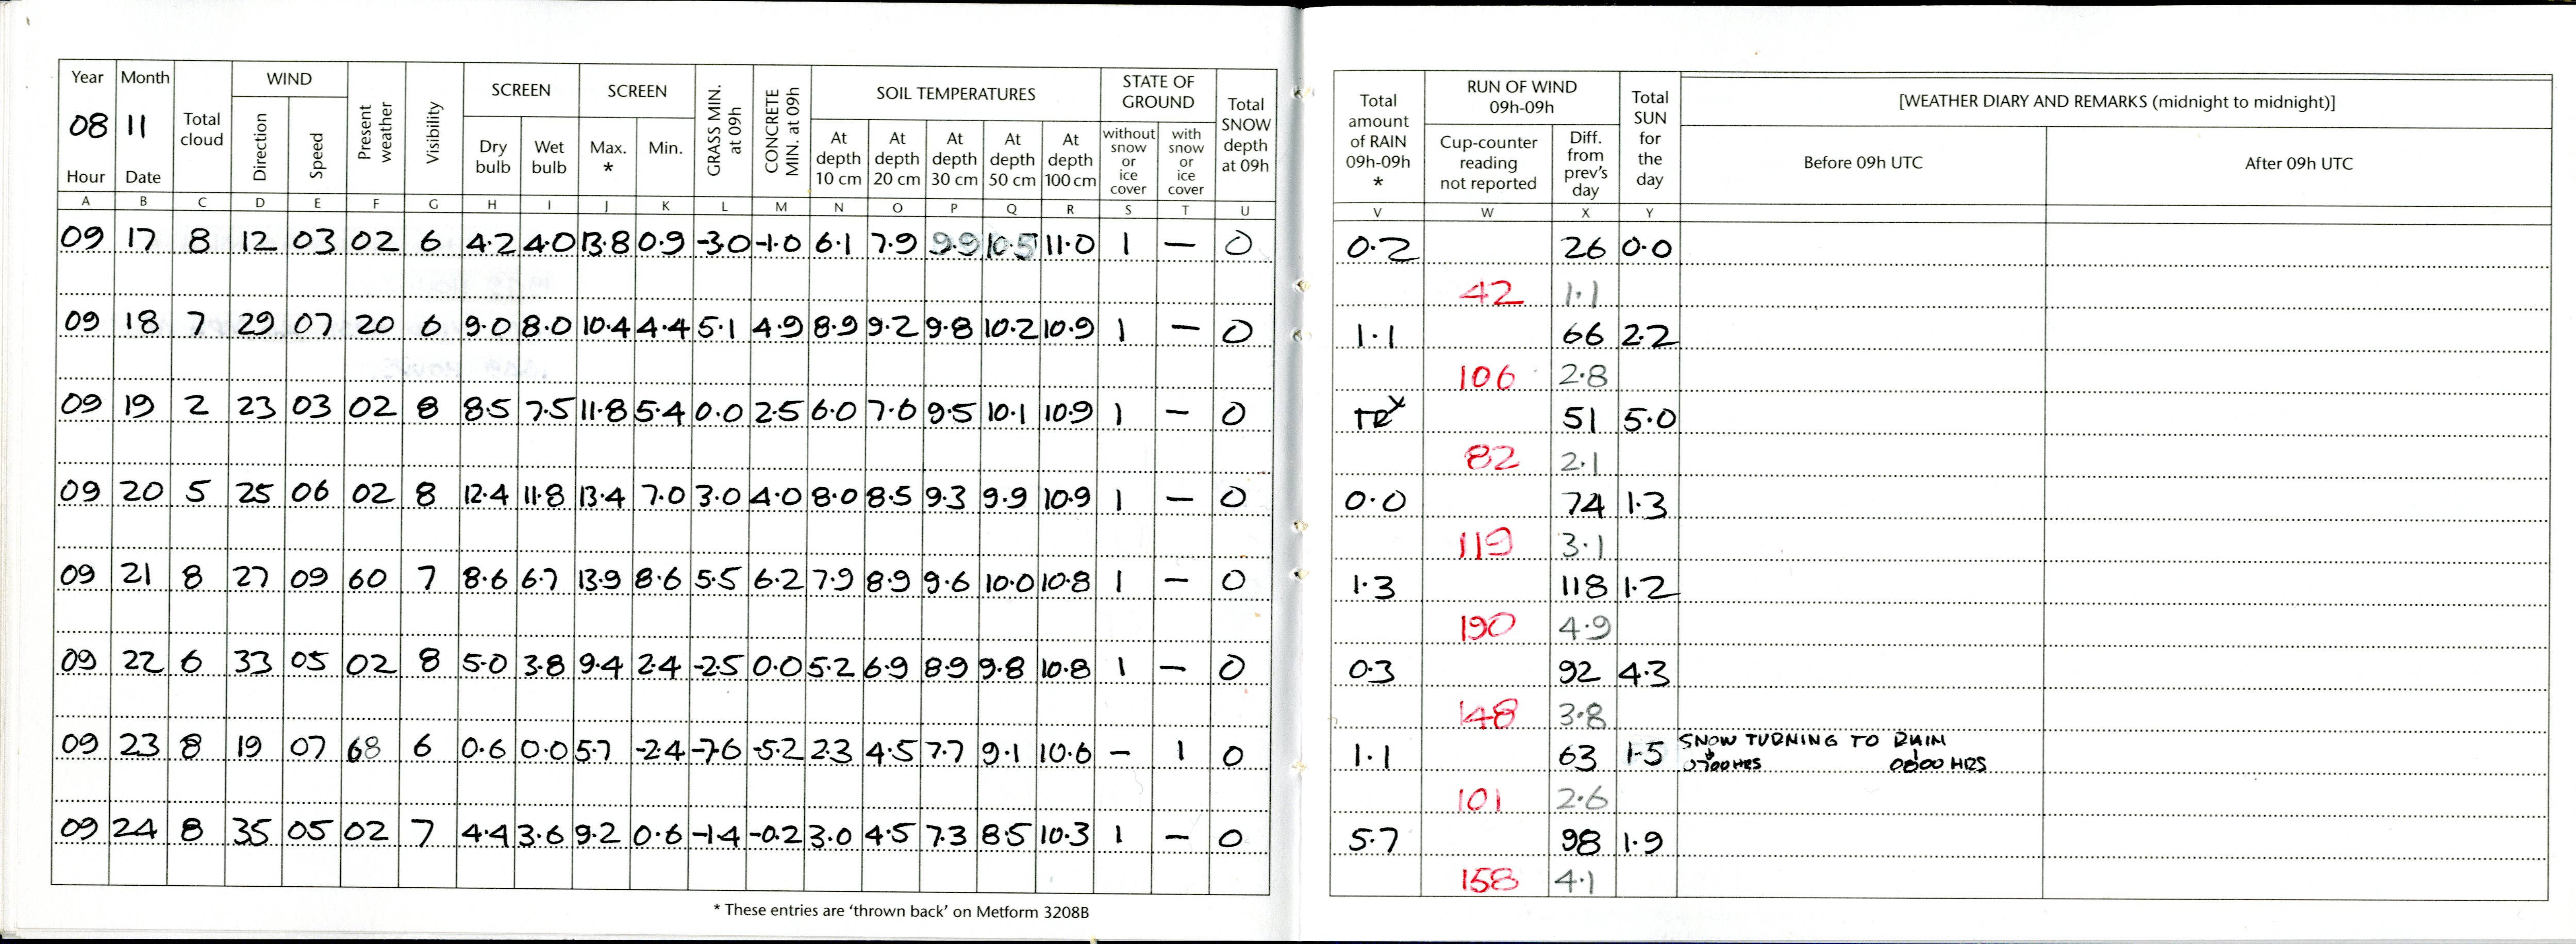 Year Month Total cloud WIND Present weather Visibility SCREEN SCREEN GRASS MIN. at 09h CONCRETE MIN. at 09h SOIL TEMPERATURES STATE OF GROUND Total SNOW depth at 09h
08 11 Direction Speed Dry bulb Wet bulb Max. * Min. At depth 10 cm At depth 20 cm At depth 30 cm At depth 50 cm At depth 100 cm without snow or ice cover with snow or ice cover
Hour Date
A B C D E F G H I J K L M N O P Q R S T U
09 17 8 12 03 02 6 4.2 4.0 13.8 0.9 -3.0 -1.0 6.1 7.9 9.9 10.5 11.0 1 — 0
09 18 7 29 07 20 6 9.0 8.0 10.4 4.4 5.1 4.9 8.9 9.2 9.8 10.2 10.9 1 — 0
09 19 2 23 03 02 8 8.5 7.5 11.8 5.4 0.0 2.5 6.0 7.6 9.5 10.1 10.9 1 — 0
09 20 5 25 06 02 8 12.4 11.8 13.4 7.0 3.0 4.0 8.0 8.5 9.3 9.9 10.9 1 — 0
09 21 8 27 09 60 7 8.6 6.7 13.9 8.6 5.5 6.2 7.9 8.9 9.6 10.0 10.8 1 — 0
09 22 6 33 05 02 8 5.0 3.8 9.4 2.4 -2.5 0.0 5.2 6.9 8.9 9.8 10.8 1 — 0
09 23 8 19 07 68 6 0.6 0.0 5.7 -2.4 -7.6 -5.2 2.3 4.5 7.7 9.1 10.6 — 1 0
09 24 8 35 05 02 7 4.4 3.6 9.2 0.6 -1.4 -0.2 3.0 4.5 7.3 8.5 10.3 1 — 0
* These entries are 'thrown back' on Metform 3208B
Total amount of RAIN 09h-09h * RUN OF WIND 09h-09h Total SUN for the day [WEATHER DIARY AND REMARKS (midnight to midnight)]
Cup-counter reading not reported Diff. from prev's day Before 09h UTC After 09h UTC
V W X Y
0.2 26 0.0
42 1.1
1.1 66 2.2
106 2.8
TR 51 5.0
82 2.1
0.0 74 1.3
119 3.1
1.3 118 1.2
190 4.9
0.3 92 4.3
148 3.8
1.1 63 1.5 SNOW TURNING TO RAIN
0700 HRS 0800 HRS
101 2.6
5.7 98 1.9
158 4.1